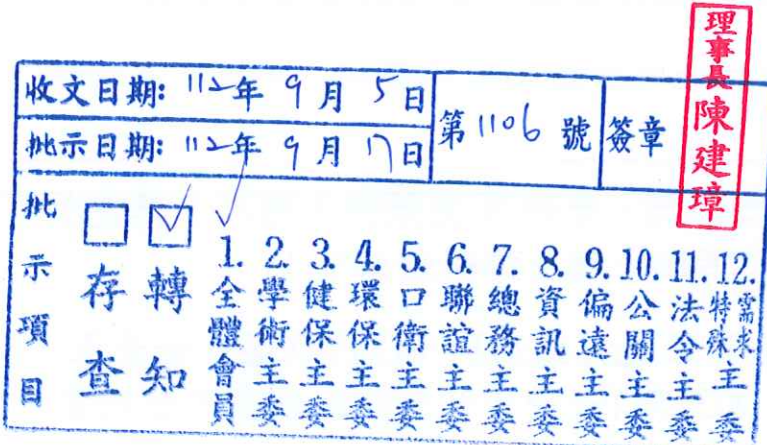 理事長陳建璋
收文日期: 112年 9月 5日
第1106號
簽章
批示日期: 112年 9月 17日
批示項目
存查
轉知
1.全體會員
2.學術主委
3.健保主委
4.環保主委
5.口衛主委
6.聯誼主委
7.總務主委
8.資訊主委
9.偏遠主委
10.公關主委
11.法令主委
12.特殊需求主委